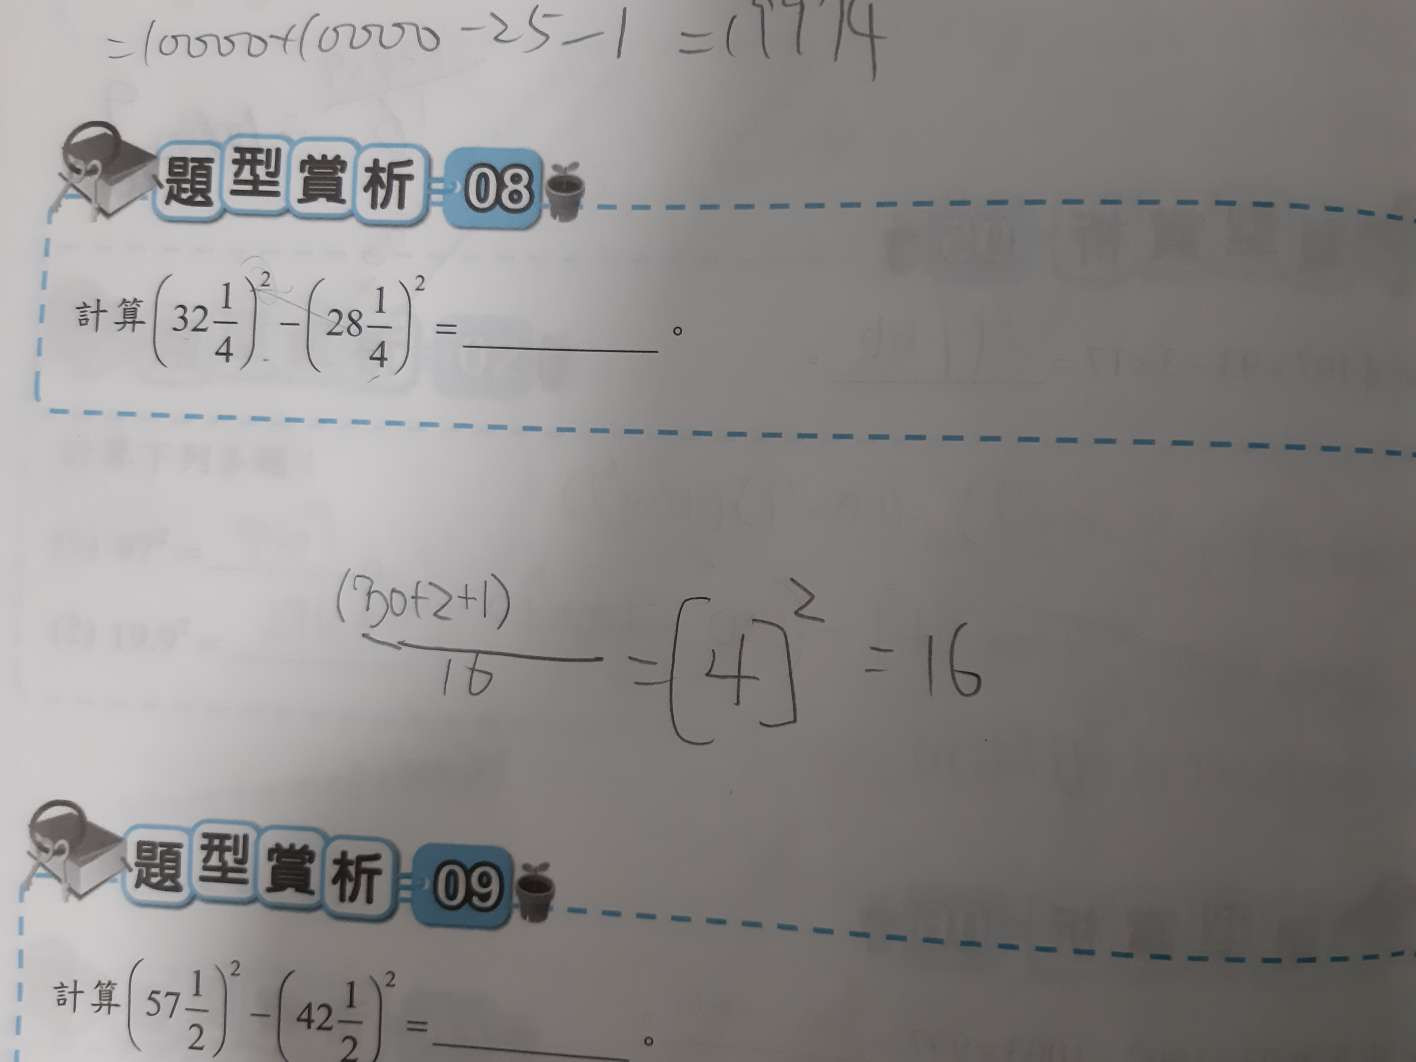 =10000+10000-25-1 =19974
題型賞析 08
計算(32 1/4)² − (28 1/4)² = ________ 。
(30+2+1)
16
=[4]² =16
題型賞析 09
計算(57 1/2)² − (42 1/2)² = ________ 。